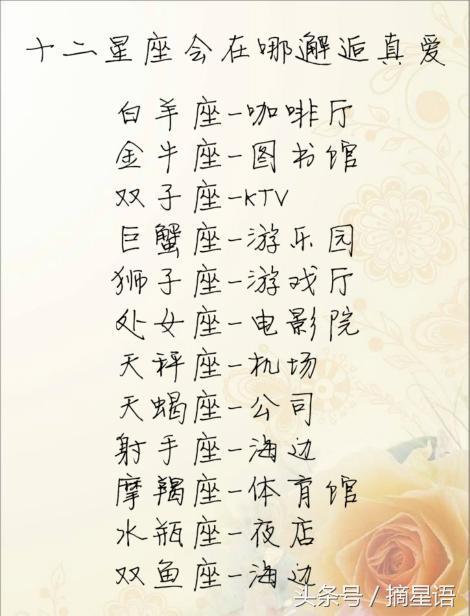 十二星座会在哪邂逅真爱
白羊座-咖啡厅
金牛座-图书馆
双子座-KTV
巨蟹座-游乐园
狮子座-游戏厅
处女座-电影院
天秤座-机场
天蝎座-公司
射手座-海边
摩羯座-体育馆
水瓶座-夜店
双鱼座-海边
头条号/摘星语